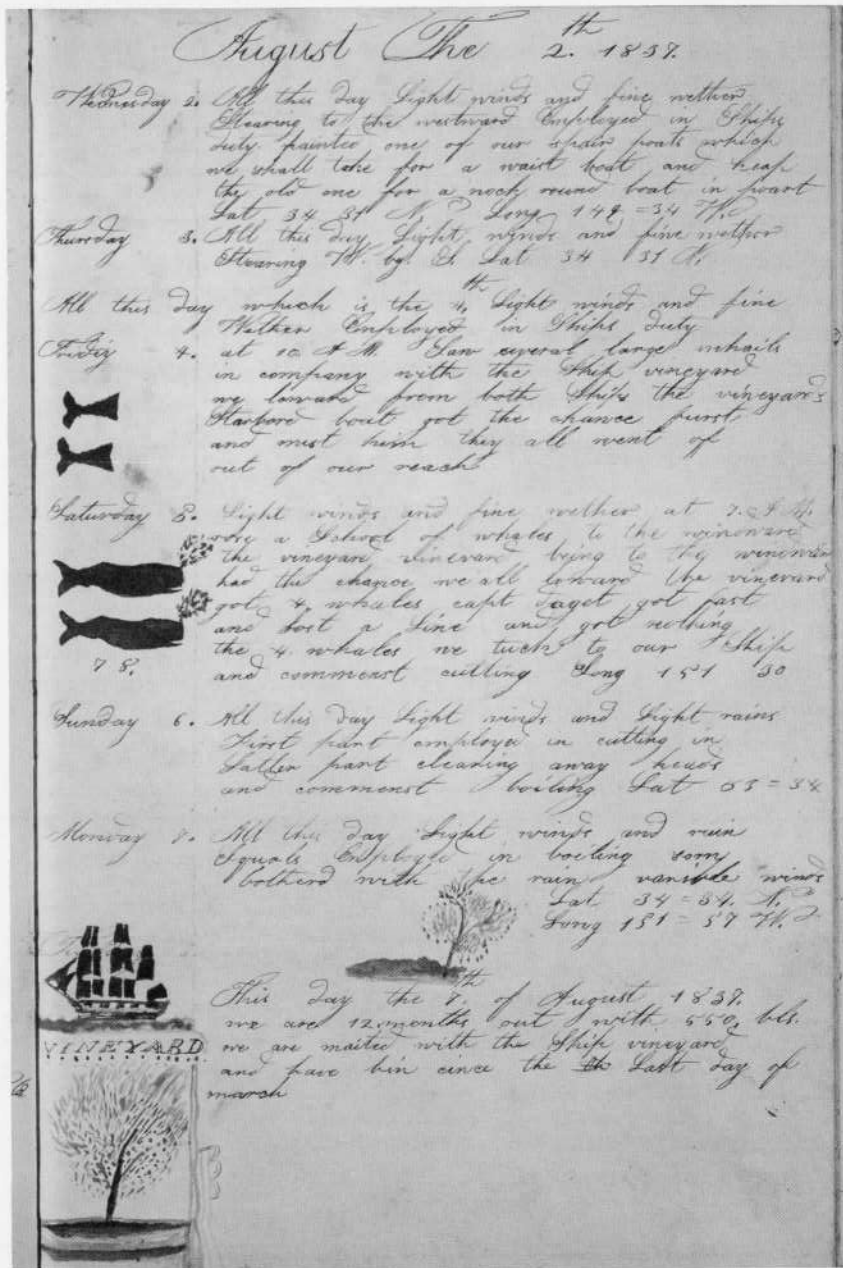 August The 2.th 1837.
Wednesday 2. All this day Light winds and fine wether
Stearing to the westward Employed in Ships
duty painted one of our spair boats which
we shall take for a waist boat and keap
the old one for a nock round boat in poart
Lat 34 31 N. Long 149 = 34 W.
Thursday 3. All this day Light winds and fine wether
Stearing W. by. S. Lat 34 31 N.
All this day which is the 4.th Light winds and fine
Wether Employed in Ships duty
Friday 4. at 10 A M. Saw several large whails
in company with the Ship vineyard
we loward from both Ships the vineyards
Starbord boat got the chance furst
and mist him they all went of
out of our reach
Saturday 5. Light winds and fine wether at 7. A M.
rose a School of whales to the windward
the vineyard vineyard being to the windward
had the chance we all loward the vineyard
got 4. whales capt daget got fast
and lost a Line and got nothing
the 4. whales we tuck to our Ship
and commenst cutting Long 151 30
7 8.
Sunday 6. All this day Light winds and Light rains
First part employed in cutting in
Latter part clearing away heads
and commenst boiling Lat 33 = 34
Monday 7. All this day Light winds and rain
squals Employed in boiling som
botherd with the rain variable winds
Lat 34 = 34. N.
Long 151 = 57 W.
This day the 7.th of August 1837.
we are 12 months out with 550, bls.
VINEYARD
we are maited with the Ship vineyard
and have bin cince the Last day of
march